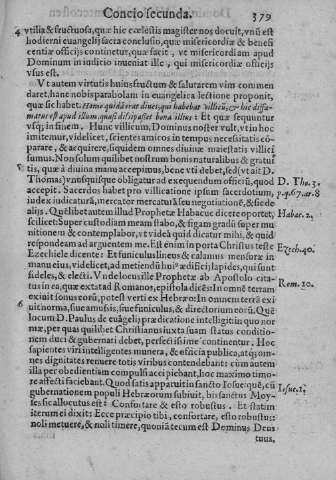 Concio secunda. 379
vtilia & fructuosa, quæ hic cœlestis magister nos docuit, vnũ est
hodierni euangelij sacra conclusio, quæ misericordiæ & benefi
centiæ officijs continetur, quæ facit, vt misericordiam apud
Dominum in iudicio inueniat ille, qui misericordiæ officijs
vsus est.
Vt autem virtutis huius fructum & salutarem vim commen
daret, hanc nobis parabolam in euangelica lectione proponit,
quæ sic habet. Homo quidã erat diues, qui habebat villicũ, & hic diffa-
matus est apud illum, quasi dissipasset bona illius: Et quæ sequuntur
vsq; in finem. Hunc villicum, Dominus noster vult, vt in hoc
imitemur, videlicet, scientes amicos in tempus necessitatis cõ
parare, & acquirere, siquidem omnes diuinæ maiestatis villici
sumus. Non solum quilibet nostrum bonis naturalibus & gratui
tis, quæ à diuina manu accepimus, bene vti debet, sed (vt ait D.
Thomas) vnusquisque obligatur ad exequendum officiũ, quod D. Tho. 3.
accepit. Sacerdos habet pro villicatione ipsum sacerdotium, p.q.67.ar.8
iudex iudicaturã, mercator mercaturã seu negotiationẽ, & sic de
alijs. Quẽlibet autem illud Prophetæ Habacuc dicere oportet, Habac. 2.
scilicet: Super custodiam meam stabo, & figam gradũ super mu
nitionem & contemplabor, vt videã quid dicatur mihi, & quid
respondeam ad arguentem me. Est enim in porta Christus teste
Ezechiele dicente: Et funiculus lineus & calamus mensuræ in Ezech. 40.
manu eius, videlicet, ad metiendũ huiꝰ ædificij lapides, qui sunt
fideles, & electi. Vnde locus ille Prophetæ ab Apostolo cita-
tus in ea, quæ extat ad Romanos, epistola dicẽs: In omnẽ terram Rom. 10.
exiuit sonus eorũ, potest verti ex Hebræo: In omnem terrã exi
uit norma, siue amosis, siue funiculus, & directorium eorũ. Quẽ
locum D. Paulus de euãgelij prædicatione intelligi tuio quo nor
mæ, per quas quilibet Christianus iuxta suam status conditio-
nem duci & gubernari debet, perfectissime continentur. Hoc
sapientes viri intelligentes munera, & officia publica, atq; om-
nes dignitates renuere totis viribus contendebant: cùm autem
illa per obedientiam compulsi accipiebant, hoc maximo timo-
re affecti faciebant. Quod satis apparuit in sancto Iosue: quẽ, cũ
gubernationem populi Hebræorum subiuit, bis sanctus Moy- Iosue. 1.
ses sic allocutus est: Confortare & esto robustus. Et statim
iterum ei dixit: Ecce præcipio tibi, confortare, esto robustus:
noli metuere, & noli timere, quoniã tecum est Dominus Deus
tuus.